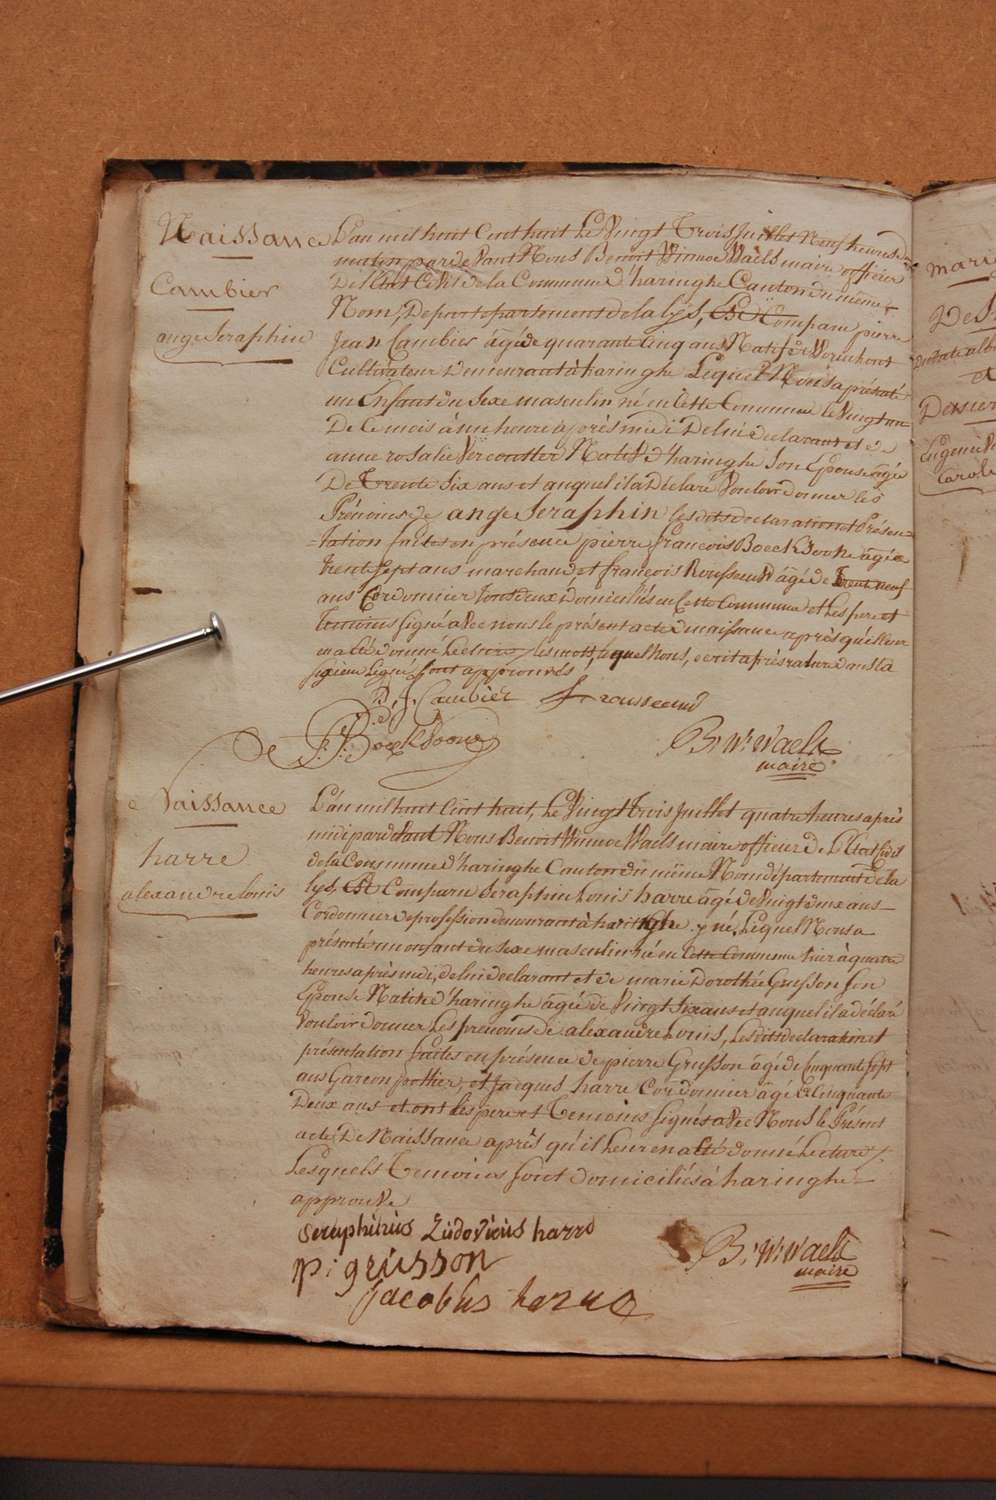 Naissance
Cambier
ange Seraphin
L'an mil huit Cent huit Le Vingt Trois Juillet Neuf heures du
matin pardeVant Nous Benoit Winnoc Waels maire officier
De l'Etat Civil de la Commune d'haringhe Canton du même
Nom, Departepartement de la lys, Est Comparu pierre
Jean Cambier âgé de quarante Cinq ans Natif de
Cultivateur Demeurant à haringhe Lequel Nous a présenté
un Enfant du Sexe masculin né en Cette Commune le Vingt un
De Ce mois à une heure après midi De lui declarant et de
anne rosalie Vercoutter Native d'haringhe Son Epouse âgée
De Trente Six ans et auquel il a Déclaré Vouloir donner les
Prénoms de ange Seraphin les dits declaration et Présen
-tation faites en présence pierre françois Boeckdoorne âgé de
trente sept ans marchand, et françois Rousseeuw âgé de Trente neuf
ans Cordonnier Tous deux Domiciliés en Cette Commune et Les pere et
Temoins signé aVec nous le présent acte de naissance après qu'il leur
en a été donné Lecture les mots, lequel Nous, ecrit après rature dans la
sixieme Ligne sont approuvés
P. J. Cambier f rousseeuw
P. F. Boeckdoorne
B. W. Waels
maire
De
Naissance
harre
alexandre louis
L'an mil huit Cent huit, Le Vingt Trois Juillet quatre heures après
midi pardeVant Nous Benoit Winnoc Waels maire officier de L'Etat Civil
de la Commune d'haringhe Canton du même Nom département de la
lys, Est Comparu Seraphin Louis harre âgé de Vingt deux ans
Cordonnier de profession demeurant à haringhe y né, Lequel Nous a
présenté un enfant du Sexe masculin né en Cette Commune hier à quatre
heures après midi, de lui declarant et de marie Dorothée Grusson son
Epouse Native d'haringhe âgée de Vingt Six ans et auquel il a déclaré
Vouloir donner Les prénoms de alexandre Louis, Les dits declaration et
présentation faites en présence de pierre Grusson âgé de Cinquante sept
ans Garcon pottier, et Jacques harre Cordonnier âgé de Cinquante
Deux ans et ont les pere et Temoins signés aVec Nous le Présent
acte De Naissance après qu'il Leur en a été donné Lecture
Lesquels Temoins sont domiciliés à haringhe
approuVe
seraphinus Ludovicus harre
p: grusson
Jacobus harre
B. W. Waels
maire